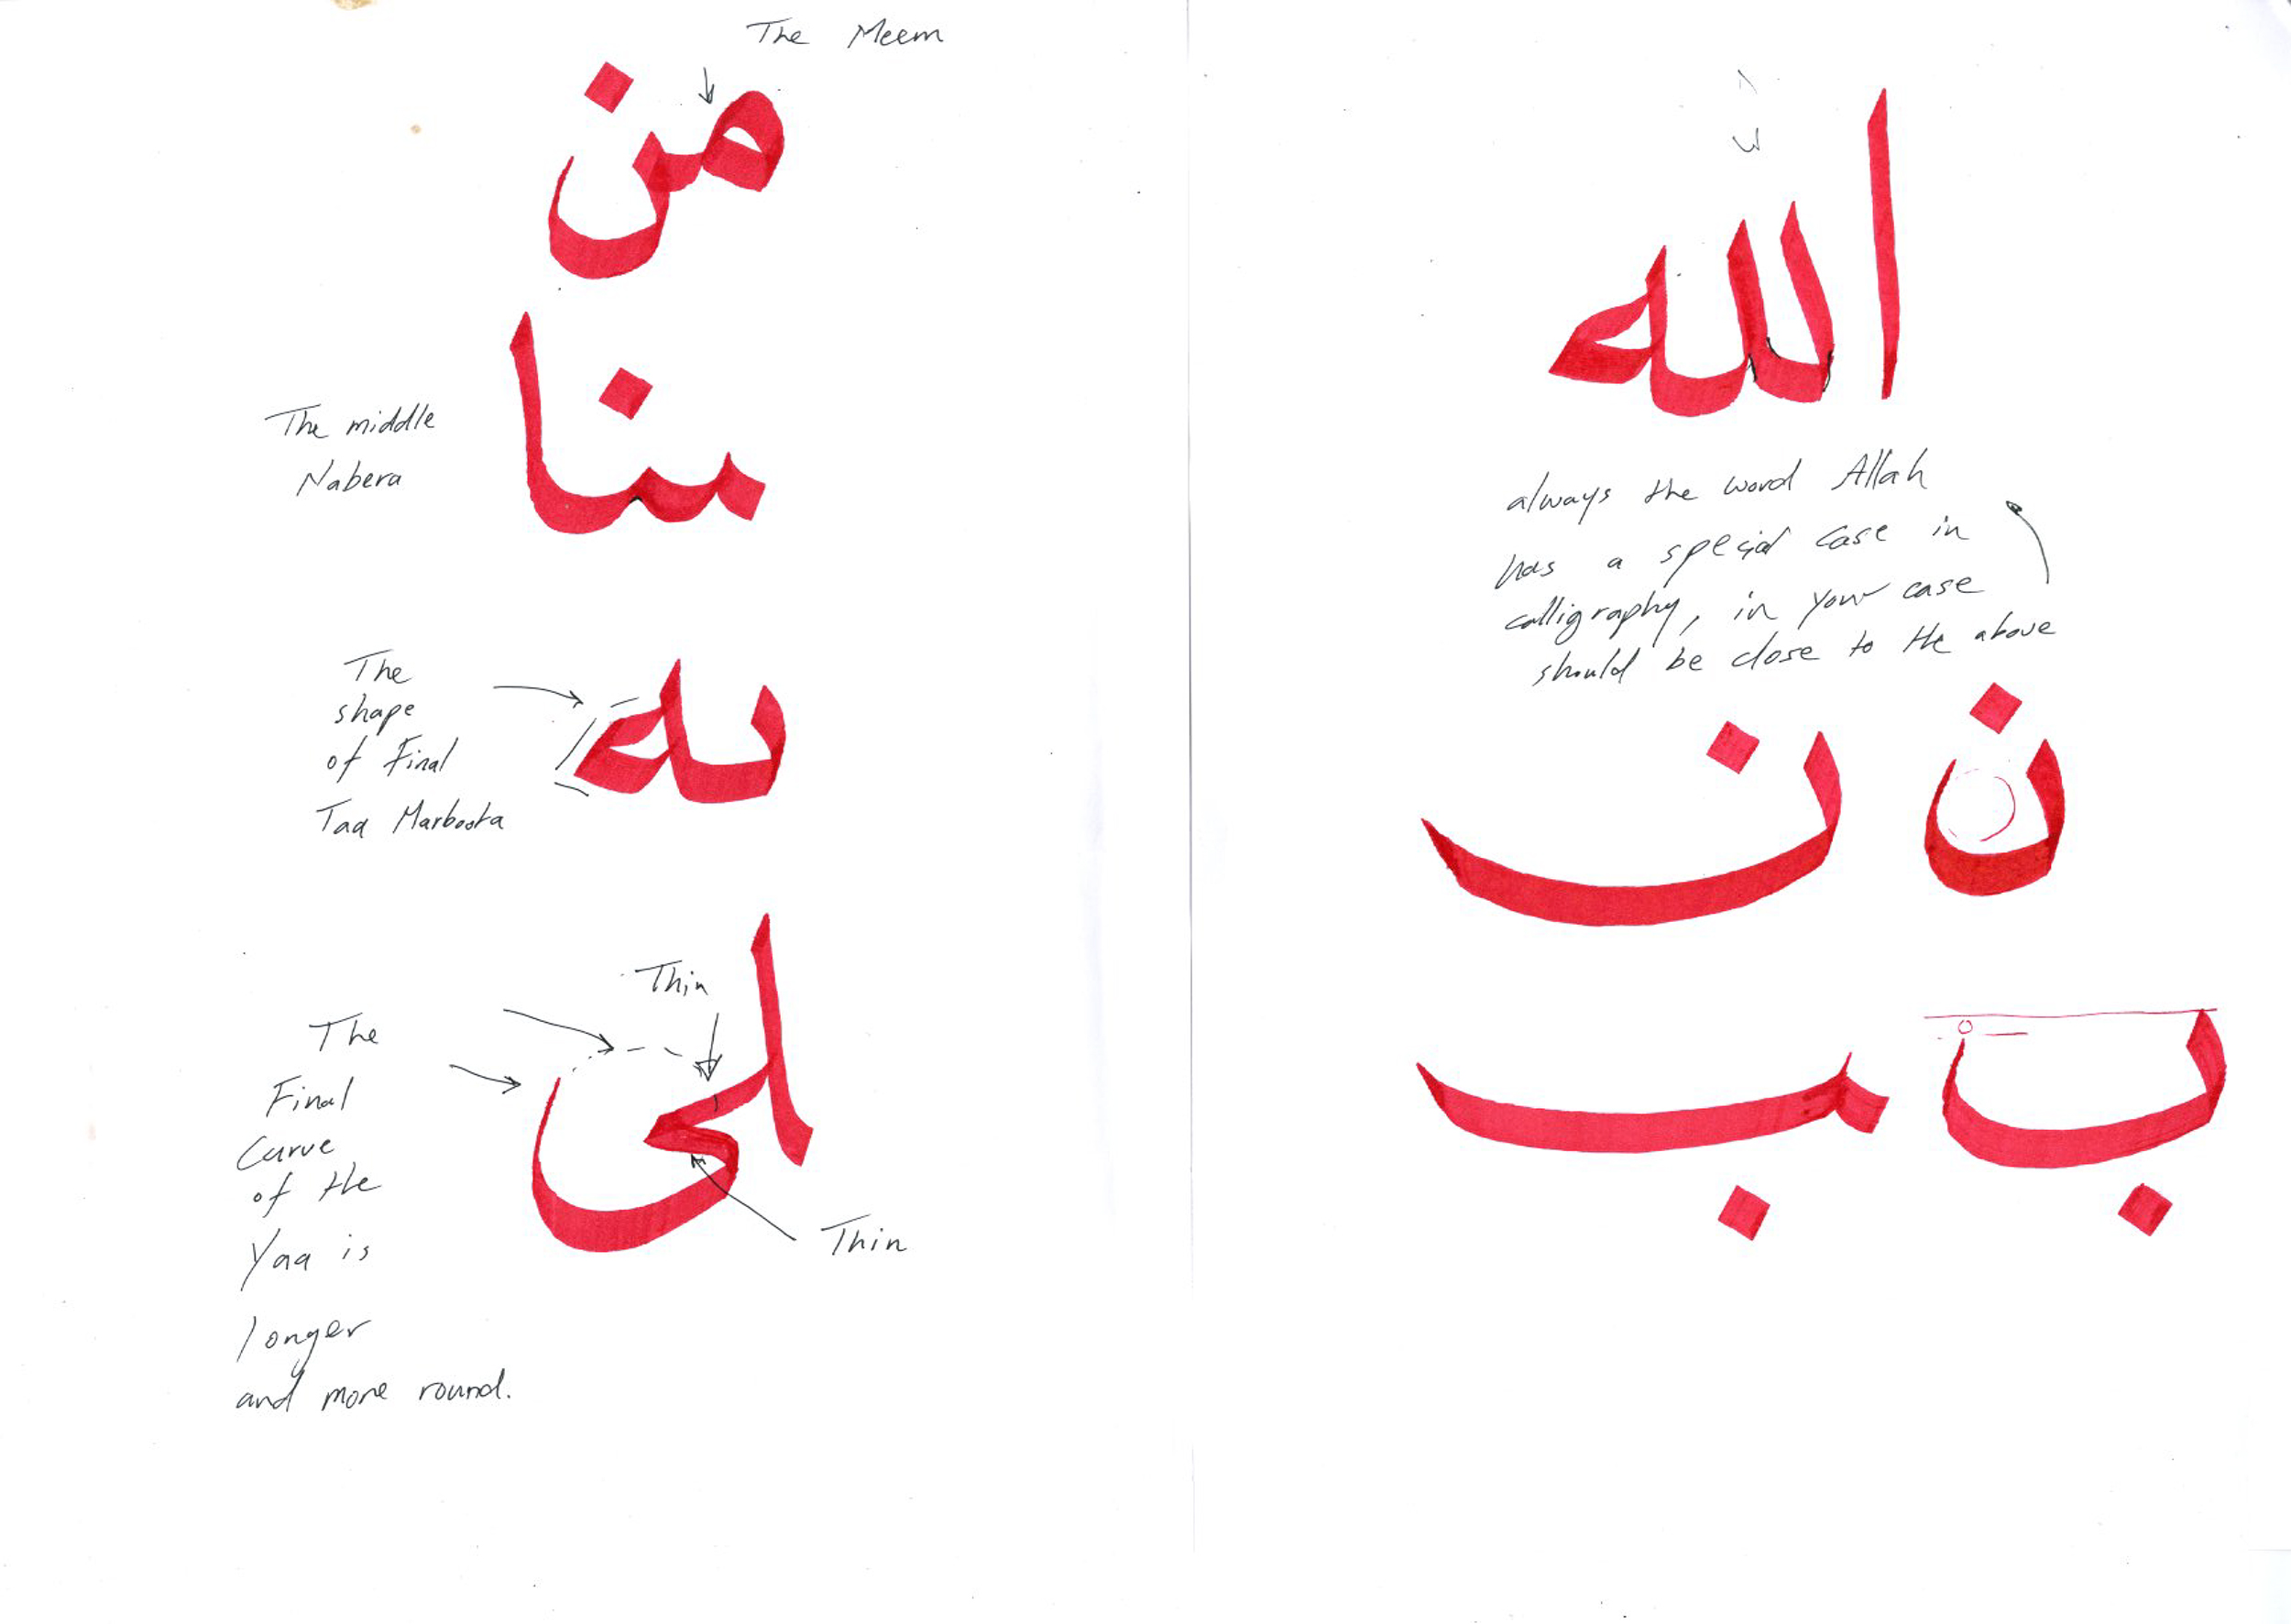 The Meem
من
The middle
Nabera
بنا
The
shape
of Final
Taa Marboota
له
Thin
The
Final
Curve
of the
Yaa is
longer
and more round.
Thin
الله
always the word Allah
has a special case in
calligraphy, in your case
should be close to the above
ن ن
ب ب